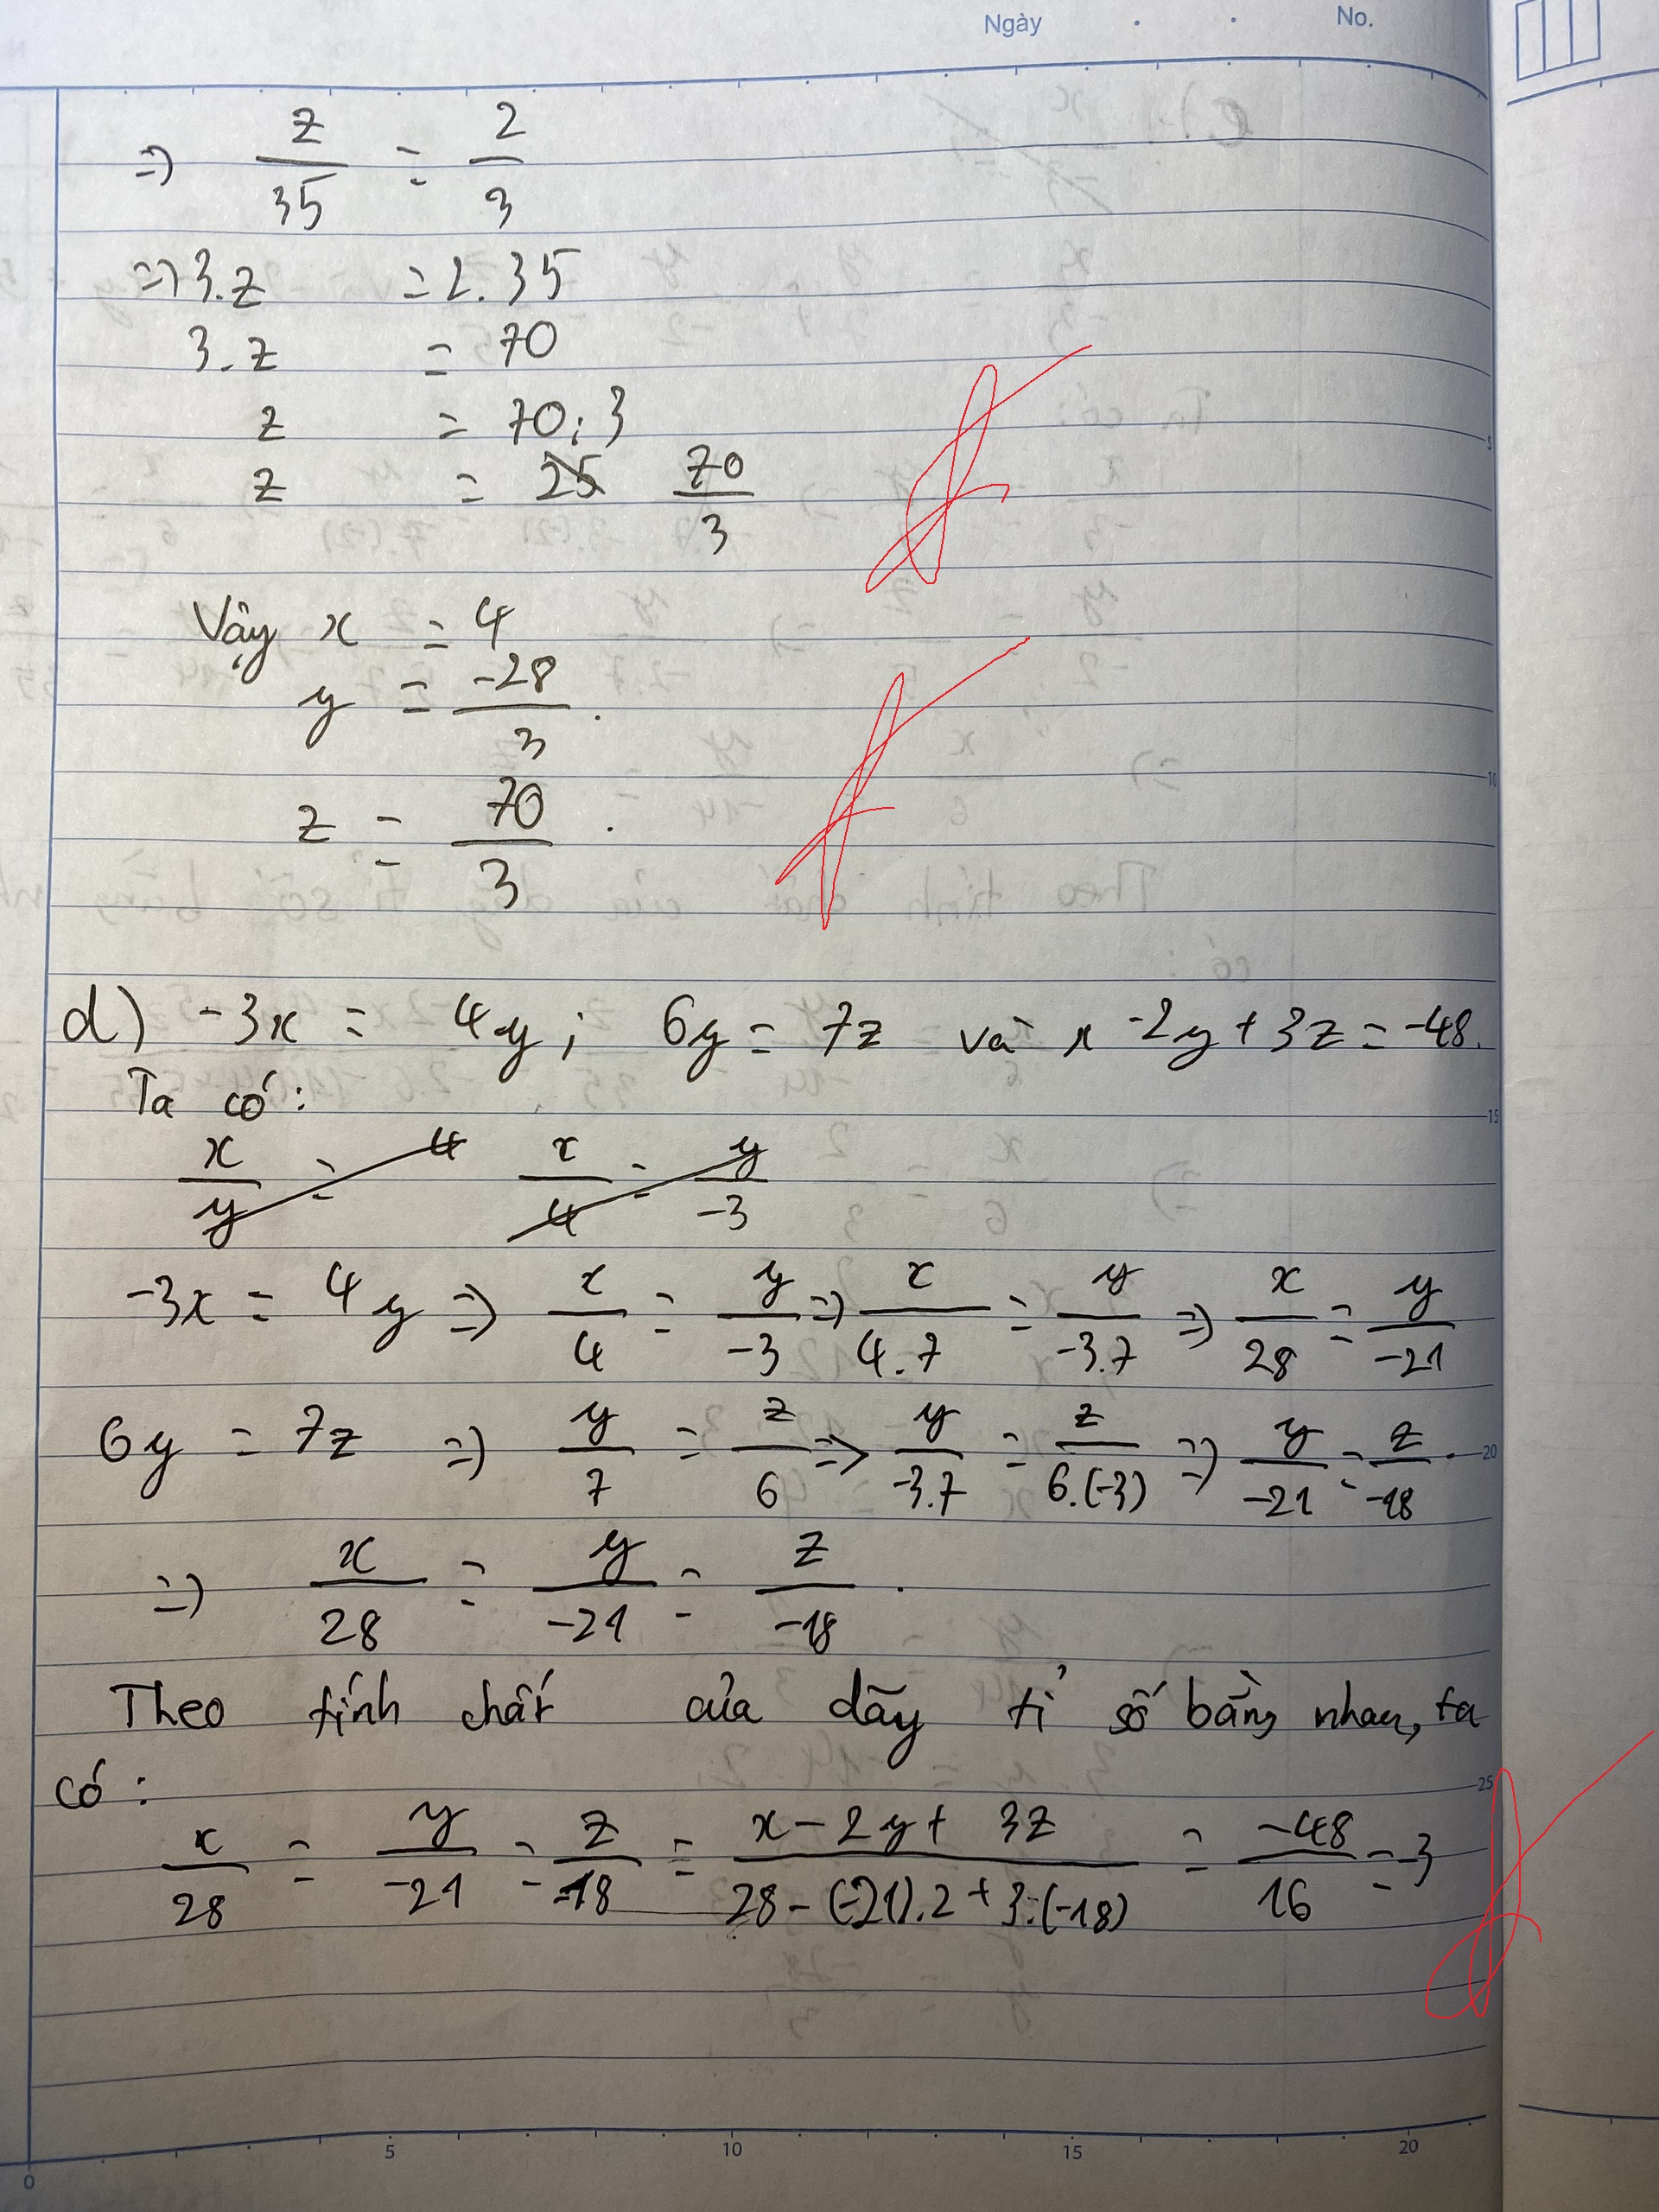 Ngày . . No.
=> z/35 = 2/3
=> 3.z = 2.35
3.z = 70
z = 70:3
z = 25 70/3
Vậy x = 4
y = -28/3 .
z = 70/3 .
d) -3x = 4y; 6y = 7z và x -2y + 3z = -48.
Ta có:
x/y = 4 x/4 = y/-3
-3x = 4y => x/4 = y/-3 => x/4.7 = y/-3.7 => x/28 = y/-21
6y = 7z => y/7 = z/6 => y/-3.7 = z/6.(-3) => y/-21 = z/-18 .
=> x/28 = y/-21 = z/-18 .
Theo tính chất của dãy tỉ số bằng nhau, ta
có:
x/28 = y/-21 = z/-18 = x - 2y + 3z/28 - (-21).2 + 3.(-18) = -48/16 = -3
5
10
15
20
25
0 5 10 15 20